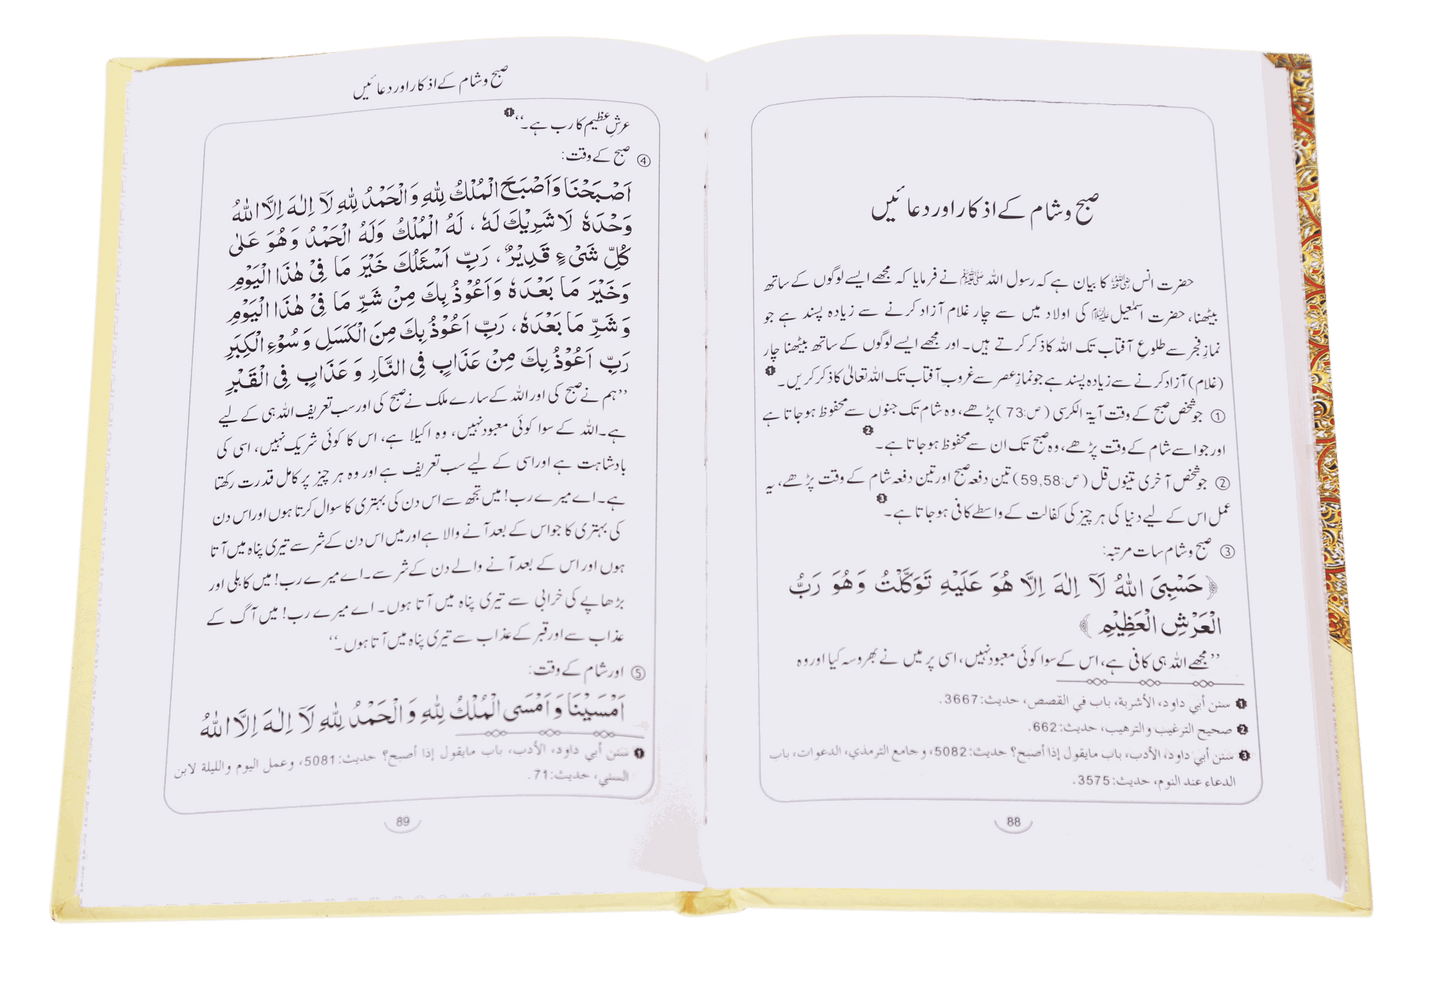 صبح و شام کے اذکار اور دعائیں
حضرت انس ﷜ کا بیان ہے کہ رسول اللہ ﷺ نے فرمایا کہ مجھے ایسے لوگوں کے ساتھ
بیٹھنا، حضرت اسمٰعیل ﷤ کی اولاد میں سے چار غلام آزاد کرنے سے زیادہ پسند ہے جو
نمازِ فجر سے طلوع آفتاب تک اللہ کا ذکر کرتے ہیں۔ اور مجھے ایسے لوگوں کے ساتھ بیٹھنا چار
(غلام) آزاد کرنے سے زیادہ پسند ہے جو نمازِ عصر سے غروب آفتاب تک اللہ تعالیٰ کا ذکر کریں۔ ❶
① جو شخص صبح کے وقت آیۃ الکرسی (ص:73) پڑھے، وہ شام تک جنوں سے محفوظ ہو جاتا ہے
اور جو اسے شام کے وقت پڑھے، وہ صبح تک ان سے محفوظ ہو جاتا ہے۔ ❷
② جو شخص آخری تینوں قل (ص:59,58) تین دفعہ صبح اور تین دفعہ شام کے وقت پڑھے، یہ
عمل اس کے لیے دنیا کی ہر چیز کی کفالت کے واسطے کافی ہو جاتا ہے۔ ❸
③ صبح و شام سات مرتبہ:
﴿ حَسْبِیَ اللّٰہُ لَآ اِلٰہَ اِلَّا ھُوَ عَلَیْہِ تَوَکَّلْتُ وَھُوَ رَبُّ
الْعَرْشِ الْعَظِیْمِ ﴾
”مجھے اللہ ہی کافی ہے، اس کے سوا کوئی معبود نہیں، اسی پر میں نے بھروسہ کیا اور وہ
❶ سنن أبي داود، الأشربة، باب في القصص، حديث:3667.
❷ صحيح الترغيب والترهيب، حديث:662.
❸ سنن أبي داود، الأدب، باب مايقول إذا أصبح؟ حديث:5082، و جامع الترمذي، الدعوات، باب
الدعاء عند النوم، حديث:3575.
88
صبح و شام کے اذکار اور دعائیں
عرشِ عظیم کا رب ہے۔“ ❶
④ صبح کے وقت:
اَصْبَحْنَا وَاَصْبَحَ الْمُلْکُ لِلّٰہِ وَالْحَمْدُ لِلّٰہِ لَآ اِلٰہَ اِلَّا اللّٰہُ
وَحْدَہٗ لَا شَرِیْکَ لَہٗ ، لَہُ الْمُلْکُ وَلَہُ الْحَمْدُ وَھُوَ عَلٰی
کُلِّ شَیْءٍ قَدِیْرٌ ، رَبِّ اَسْئَلُکَ خَیْرَ مَا فِیْ ھٰذَا الْیَوْمِ
وَخَیْرَ مَا بَعْدَہٗ وَاَعُوْذُ بِکَ مِنْ شَرِّ مَا فِیْ ھٰذَا الْیَوْمِ
وَ شَرِّ مَا بَعْدَہٗ ، رَبِّ اَعُوْذُ بِکَ مِنَ الْکَسَلِ وَ سُوْءِ الْکِبَرِ
رَبِّ اَعُوْذُ بِکَ مِنْ عَذَابٍ فِی النَّارِ وَ عَذَابٍ فِی الْقَبْرِ
”ہم نے صبح کی اور اللہ کے سارے ملک نے صبح کی اور سب تعریف اللہ ہی کے لیے
ہے۔ اللہ کے سوا کوئی معبود نہیں، وہ اکیلا ہے، اس کا کوئی شریک نہیں، اسی کی
بادشاہت ہے اور اسی کے لیے سب تعریف ہے اور وہ ہر چیز پر کامل قدرت رکھتا
ہے۔ اے میرے رب! میں تجھ سے اس دن کی بہتری کا سوال کرتا ہوں اور اس دن
کی بہتری کا جو اس کے بعد آنے والا ہے اور میں اس دن کے شر سے تیری پناہ میں آتا
ہوں اور اس کے بعد آنے والے دن کے شر سے۔ اے میرے رب! میں کاہلی اور
بڑھاپے کی خرابی سے تیری پناہ میں آتا ہوں۔ اے میرے رب! میں آگ کے
عذاب سے اور قبر کے عذاب سے تیری پناہ میں آتا ہوں۔“
⑤ اور شام کے وقت:
اَمْسَیْنَا وَ اَمْسَی الْمُلْکُ لِلّٰہِ وَ الْحَمْدُ لِلّٰہِ لَآ اِلٰہَ اِلَّا اللّٰہُ
❶ سنن أبي داود، الأدب، باب مايقول إذا أصبح؟ حديث:5081، و عمل اليوم والليلة لابن
السني، حديث:71.
89